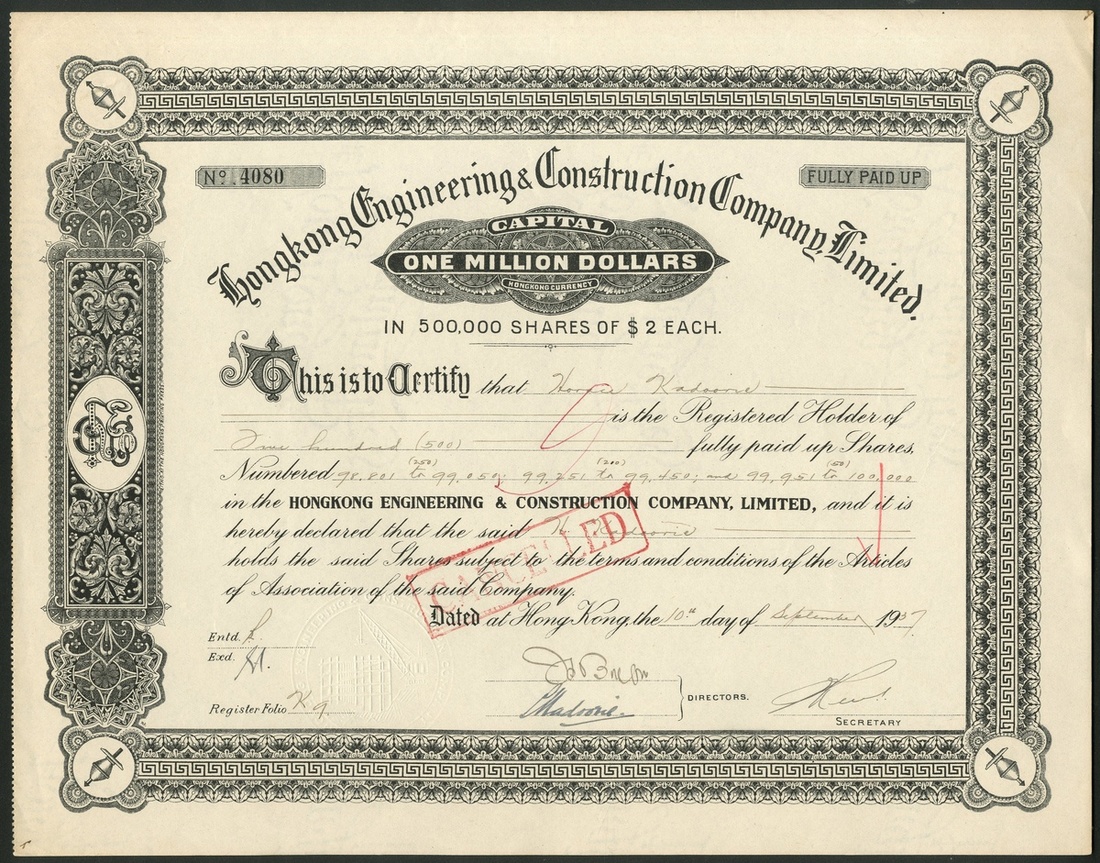 No. 4080
FULLY PAID UP
Hongkong Engineering & Construction Company, Limited.
CAPITAL
ONE MILLION DOLLARS
HONGKONG CURRENCY
IN 500,000 SHARES OF $2 EACH.
This is to Certify that Horace Kadoorie
is the Registered Holder of
hundred (500) fully paid up Shares,
(250) (200) (50)
Numbered 98,801 to 99,050; 99,251 to 99,450; and 99,951 to 100,000
in the HONGKONG ENGINEERING & CONSTRUCTION COMPANY, LIMITED, and it is
hereby declared that the said H. Kadoorie
holds the said Shares subject to the terms and conditions of the Articles
of Association of the said Company.
CANCELLED
Dated at Hong Kong, the 10th day of September 1937
Entd.
Exd.
Register Folio K 9
Kadoorie
DIRECTORS.
SECRETARY